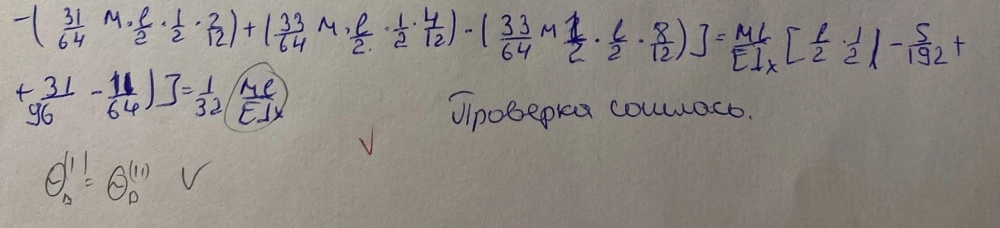 -( 31/64 M · l/2 · 1/2 · 2/12) + (33/64 M · l/2 · 1/2 · 4/12) - ( 33/64 M · l/2 · 8/12)] = Ml/EIx [ l/2 · 1/2 ) - 5/192 +
+ 31/96 - 11/64 )] = 1/32 Ml/EIx
Проверка сошлась.
V
Θ_D^(I) = Θ_D^(II) V